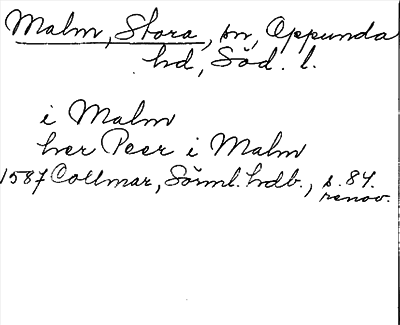 Malm, Stora, sn, Oppunda
hd, Söd. l.
i Malm
her Peer i Malm
1587 Collmar, Sörml. hdb., s. 84.
renov.